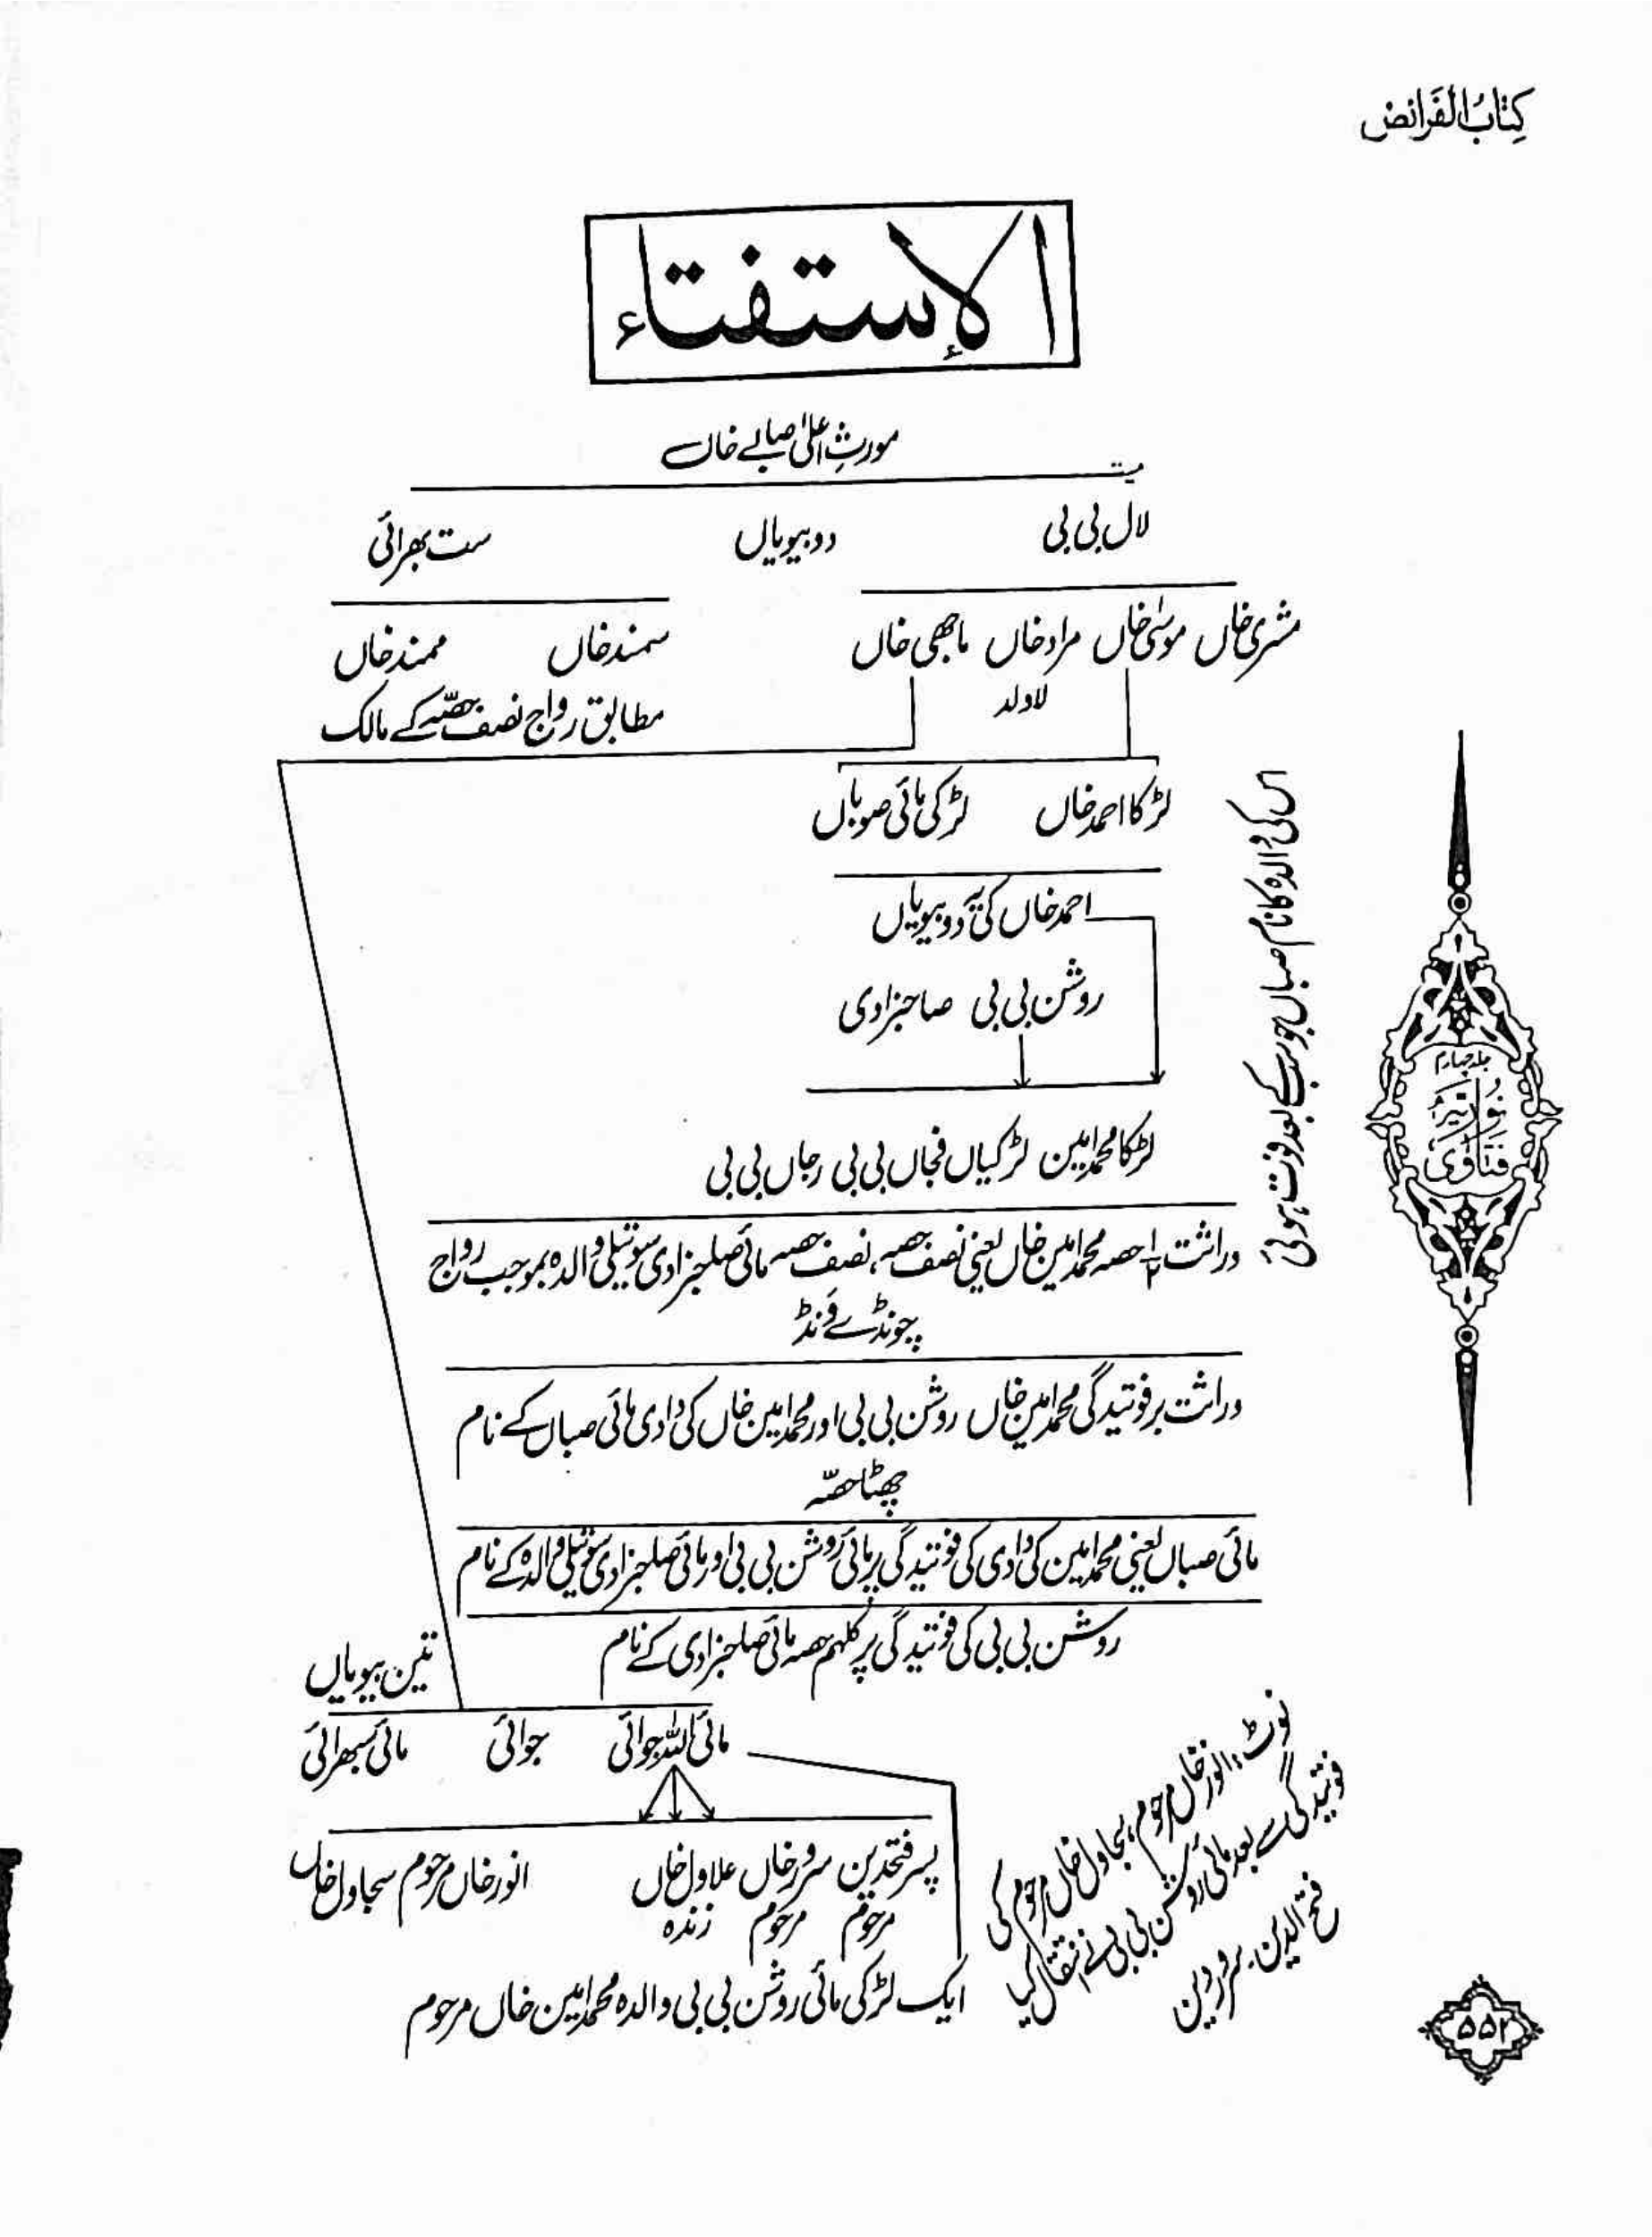 کِتَابُ الْفَرَائِض
الإستفتاء
مورثِ اعلیٰ صالے خاں
میت
لال بی بی دو بیویاں ست بھرائی
مشری خاں موسیٰ خاں مراد خاں ماچھی خاں سمند خاں ممند خاں
لاولد مطابق رواج نصف حصّہ کے مالک
لڑکا احمد خاں لڑکی مائی صوباں
احمد خاں کی یہ دو بیویاں
روشن بی بی صاحبزادی
لڑکا محمد امین لڑکیاں فجاں بی بی رجاں بی بی
وراثت ۱/۲ حصہ محمد امین خاں یعنی نصف حصہ، نصف حصہ مائی صاحبزادی سوتیلی والدہ بموجب رواج
چونڈے وَنڈ
وراثت بر فوتیدگی محمد امین خاں روشن بی بی اور محمد امین خاں کی دادی مائی صباں کے نام
چھٹا حصّہ
مائی صباں یعنی محمد امین کی دادی کی فوتیدگی پر مائی روشن بی بی اور مائی صاحبزادی سوتیلی والدہ کے نام
روشن بی بی کی فوتیدگی پر کلہم حصہ مائی صاحبزادی کے نام
اس کی والدہ کا نام صباں جو سب کے بعد فوت ہوئی
تین بیویاں
مائی اللہ جوائی جوائی مائی سبھرائی
پسر فتحدین سرور خاں علاول خاں انور خاں مرحوم سجاول خاں
مرحوم مرحوم زندہ
ایک لڑکی مائی روشن بی بی والدہ محمد امین خاں مرحوم
نوٹ: انور خاں مرحوم، سجاول خاں مرحوم کی
فوتیدگی سے بعد مائی روشن بی بی نے انتقال کیا
فتح الدین، سرور دین
جلد چہارم
نُورِیَّہ
فَتَاوٰی
۵۵۲